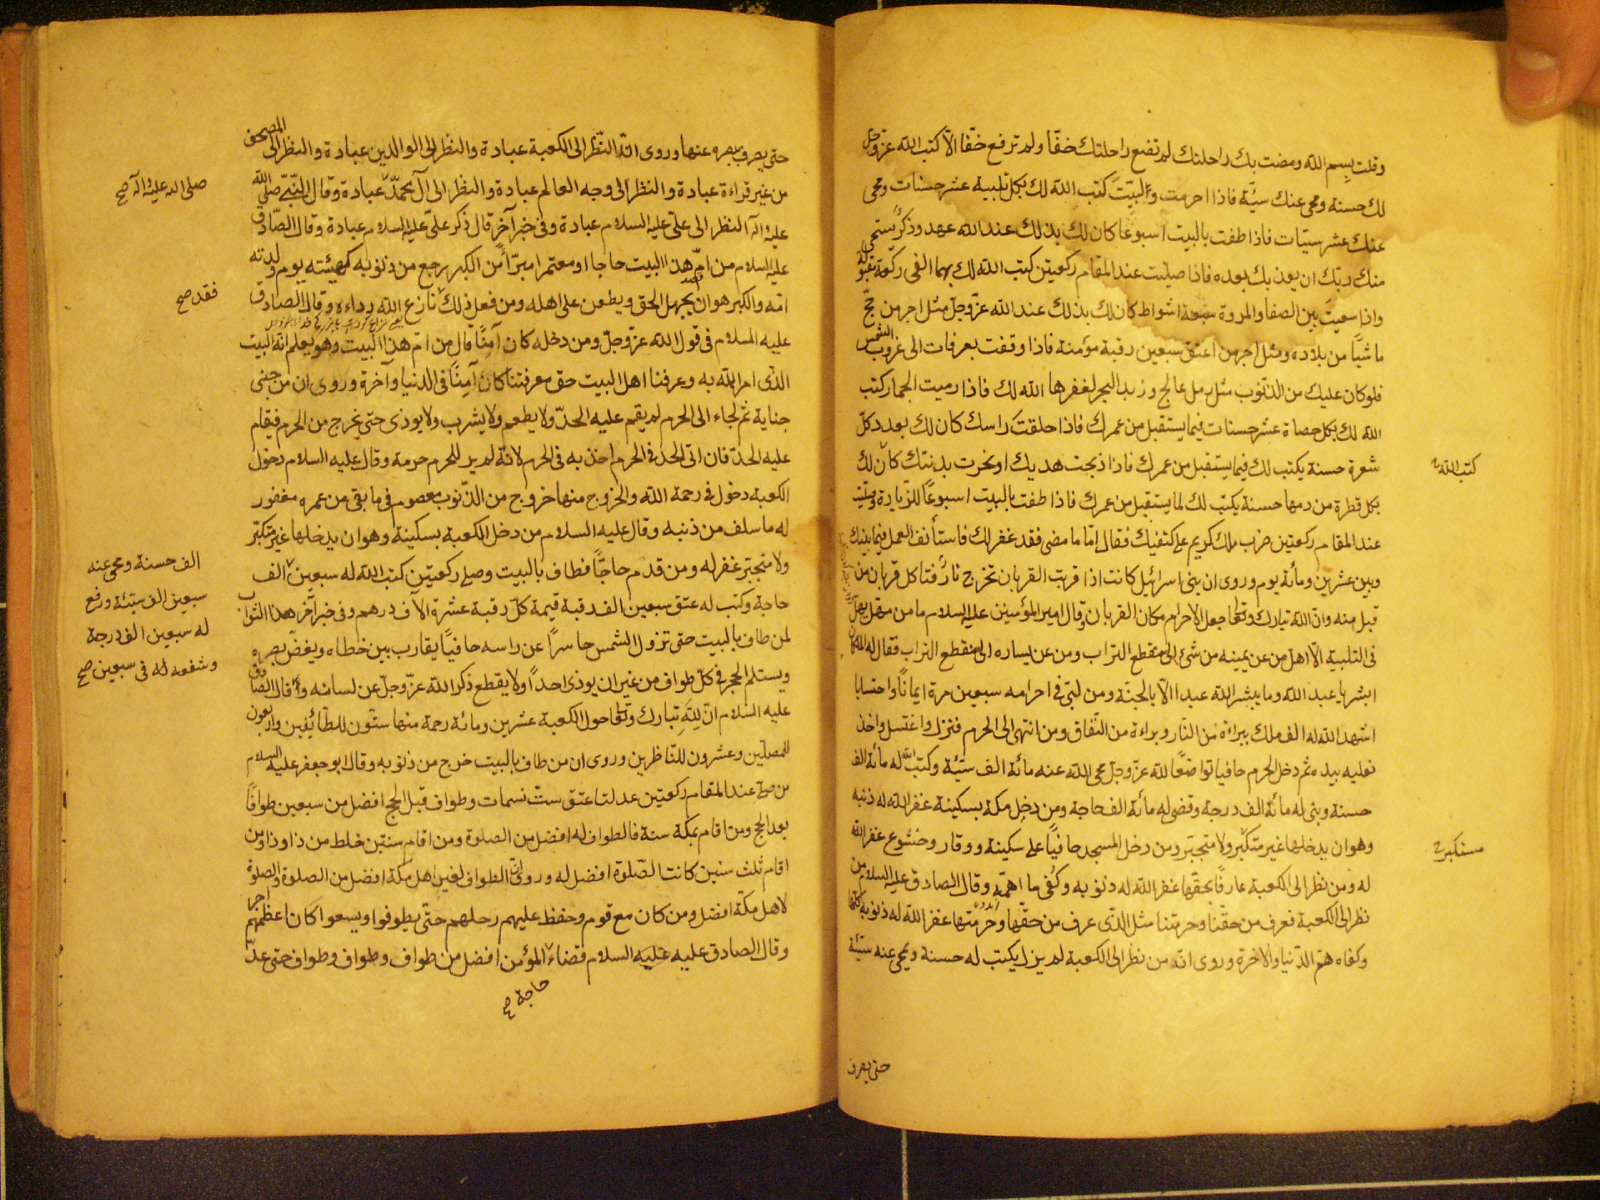 وقلت بسم الله ومضت بك راحلتك لم تضع راحلتك خفّا ولم ترفع خفّا الّا كتب الله عزّوجلّ
لك حسنة ومحى عنك سيّئة فاذا احرمت ولبّيت كتب الله لك بكلّ تلبية عشر حسنات ومحى
عنك عشر سيّئات فاذا طفت بالبيت اسبوعًا كان لك بذلك عند الله عهد وذكر يستحيى
منك ربّك ان يعذبك بعده فاذا صلّيت عند المقام ركعتين كتب الله لك بهما الفى ركعة مقبولة
واذا سعيت بين الصفا والمروة سبعة اشواط كان لك بذلك عند الله عزّوجلّ مثل اجر من حجّ
ماشيًا من بلاده ومثل اجر من اعتق سبعين رقبة مؤمنة فاذا وقفت بعرفات الى غروب الشمس
فلو كان عليك من الذّنوب مثل رمل عالج وزبد البحر لغفرها الله لك فاذا رميت الجمار كتب
الله لك بكلّ حصاة عشر حسنات فيما يستقبل من عمرك فاذا حلقت راسك كان لك بعدد كلّ
شعرة حسنة يكتب لك فيما يستقبل من عمرك فاذا ذبحت هديك او نحرت بدنتك كان لك
كتب الله
بكل قطرة من دمها حسنة يكتب لك لما يستقبل من عمرك فاذا طفت بالبيت اسبوعًا للزّيارة وصلّيت
عند المقام ركعتين ضرب ملك كريم على كتفيك فقال امّا ما مضى فقد غفر لك فاستأنف العمل فيما بينك
وبين عشرين ومأئة يوم وروى ان بنى اسرائيل كانت اذا قربت القربان تخرج نار فتأكل قربان من
قبل منه وانّ الله تبارك وتعالى جعل الاحرام مكان القربان وقال امير المؤمنين عليه السلام ما من مهلّ يهلّ
فى التلبية الّا اهلّ من عن يمينه من شىء الى منقطع التراب ومن عن يساره الى منقطع التراب فقال له الملكان
ابشر يا عبد الله وما يبشر الله عبدا الّا بالجنّة ومن لبّى فى احرامه سبعين مرة ايمانًا واحتسابا
اشهد الله له الف ملك ببراءة من النّار وبراءة من النّفاق ومن انتهى الى الحرم فنزل واغتسل واخذ
نعليه بيده ثم دخل الحرم حافيا تواضعًا لله عزّوجلّ محى الله عنه مائة الف سيّئة وكتب الله له مأئة الف
حسنة وبنى له مأئة الف درجة وقضى له مأئة الف حاجة ومن دخل مكة بسكينة غفر الله له ذنبه
وهو ان يدخلها غير متكبّر ولا متجبّر ومن دخل المسجد حافيًا على سكينة ووقار وخشوع غفر الله
مستكبر
له ومن نظر الى الكعبة عارفًا بحقّها غفر الله له ذنوبه وكفى ما اهمّه وقال الصادق عليه السلام من
نظر الى الكعبة فعرف من حقّنا وحرمتنا مثل الّذى عرف من حقّها وحرمتها غفر الله له ذنوبه كلّها
وكفاه همّ الدّنيا والاخرة وروى انّه من نظر الى الكعبة لم يزل يكتب له حسنة ويمحى عنه سيّئة
حتى يصرف
حتى يصرف ببصره عنها وروى انّ النّظر الى الكعبة عبادة والنظر الى الوالدين عبادة والنظر الى المصحف
من غير قراءة عبادة والنظر الى وجه العالم عبادة والنظر الى آل محمّد عبادة وقال النّبىّ صلى الله
صلى الله عليه وآله صح
عليه وآله النظر الى علىّ عليه السلام عبادة وفى خبر آخر قال ذكر علىّ عليه السلام عبادة وقال الصّادق
عليه السلام من امّ هذا البيت حاجا او معتمرا مبرّأ من الكبر رجع من ذنوبه كهيئته يوم ولدته
امّه والكبر هو ان يجهل الحق ويطعن على اهله ومن فعل ذلك نازع الله رداءه وقال الصادق
فقد صح
عليه السلام فى قول الله عزّوجلّ ومن دخله كان آمنًا قال من امّ هذا البيت وهو يعلم انّه البيت
الّذى امر الله به وعرفنا اهل البيت حق معرفتنا كان آمنًا فى الدنيا وآخرة وروى ان من جنى
جناية ثم لجاء الى الحرم لم يقم عليه الحدّ ولا يطعم ولا يشرب ولا يوذى حتى يخرج من الحرم فيقام
عليه الحدّ فان اتى الحدّ فى الحرم اخذ به فى الحرم لانّه لم ير للحرم حرمة وقال عليه السلام دخول
الكعبة دخول فى رحمة الله والخروج منها خروج من الذّنوب معصوم فى ما بقى من عمره مغفور
له ما سلف من ذنبه وقال عليه السلام من دخل الكعبة بسكينة وهو ان يدخلها غير متكبّر
ولا متجبّر غفر له ومن قدم حاجًا فطاف بالبيت وصلى ركعتين كتب الله له سبعين الف
الف حسنة ومحى عنه
سبعين الف سيئة ورفع
له سبعين الف درجة
وشفعه له فى سبعين صح
حاجة وكتب له عتق سبعين الف رقبة قيمة كلّ رقبة عشرة الآف درهم وفى خبر آخر هذا الثواب
لمن طاف بالبيت حتى تزول الشمس حاسرًا عن راسه حافيًا يقارب بين خطاه ويغضّ بصره
ويستلم الحجر فى كلّ طواف من غير ان يوذى احدًا ولا يقطع ذكر الله عزّوجلّ عن لسانه وقال الصّادق
عليه السلام انّ لله تبارك وتعالى حول الكعبة عشرين ومائة رحمة منها ستّون للطّائفين واربعون
للمصلّين وعشرون للنّاظرين وروى ان من طاف بالبيت خرج من ذنوبه وقال ابو جعفر عليه السلام
من صلّى عند المقام ركعتين عدلتا عتق ستّ نسمات وطواف قبل الحج افضل من سبعين طوافًا
بعد الحج ومن اقام بمكّة سنة فالطواف له افضل من الصلوة ومن اقام سنتين خلط من ذا وذا ومن
اقام ثلث سنين كانت الصّلوة افضل له وروى انّ الطواف لغير اهل مكّة افضل من الصلوة والصلوة
لاهل مكّة افضل ومن كان مع قوم وحفظ عليهم رحلهم حتّى يطوفوا ويسعوا كان اعظمهم اجرا
وقال الصادق عليه عليه السلام قضاء المؤمن افضل من طواف وطواف وطواف حتى عدّ
حاجة صح